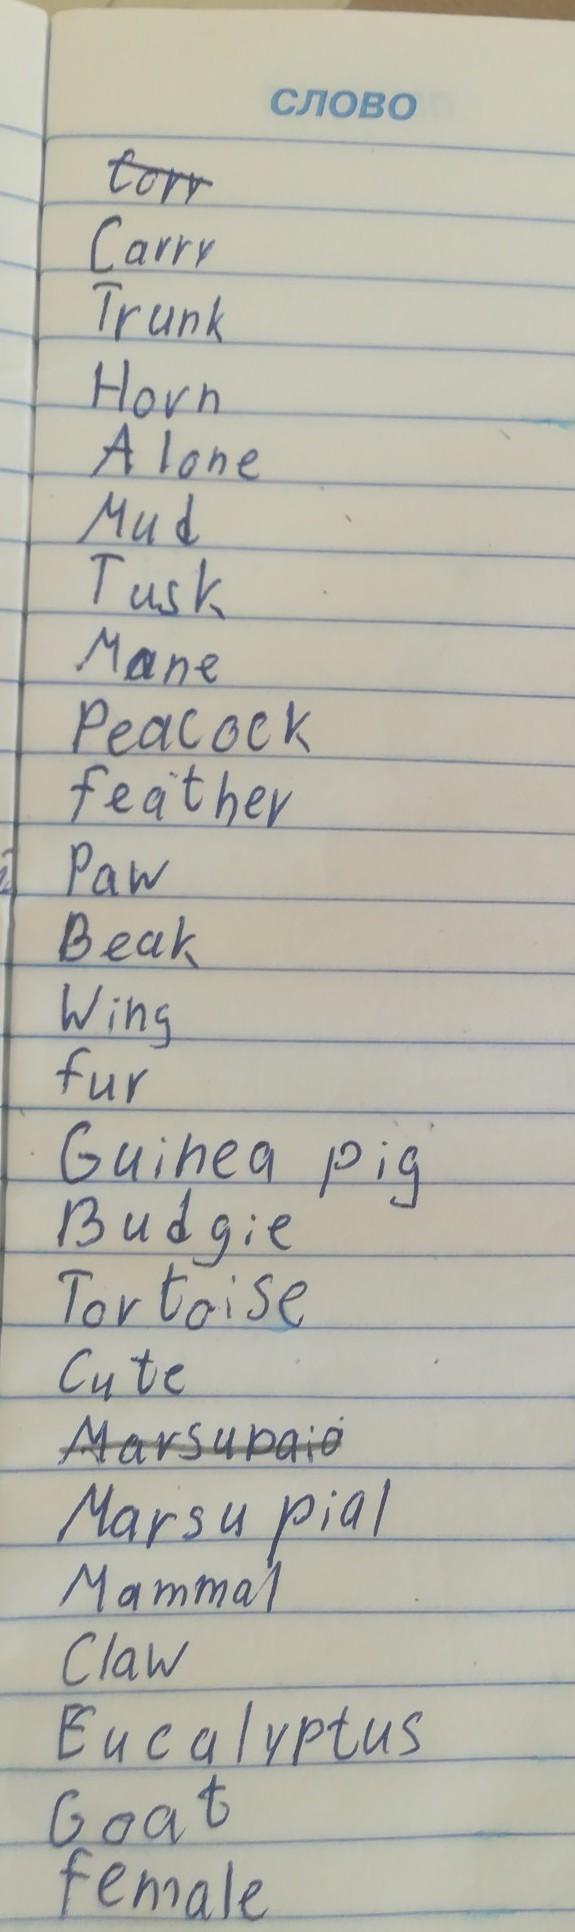 СЛОВО
Corr
Carry
Trunk
Horn
Alone
Mud
Tusk
Mane
Peacock
feather
Paw
Beak
Wing
fur
Guinea pig
Budgie
Tortoise
Cute
Marsupaio
Marsupial
Mammal
Claw
Eucalyptus
Goat
female